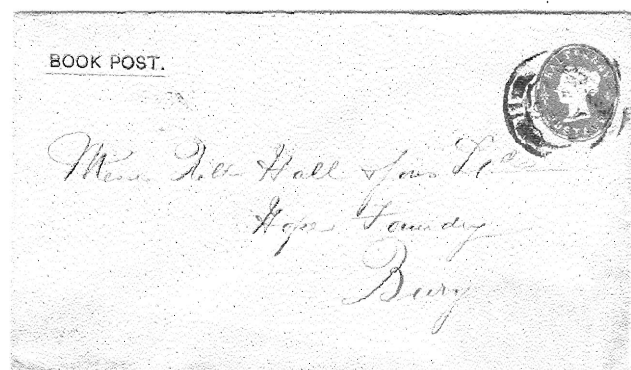 BOOK POST.
HALFPENNY
Messrs Robt Hall & Sons Ld
Hope Foundry
Bury